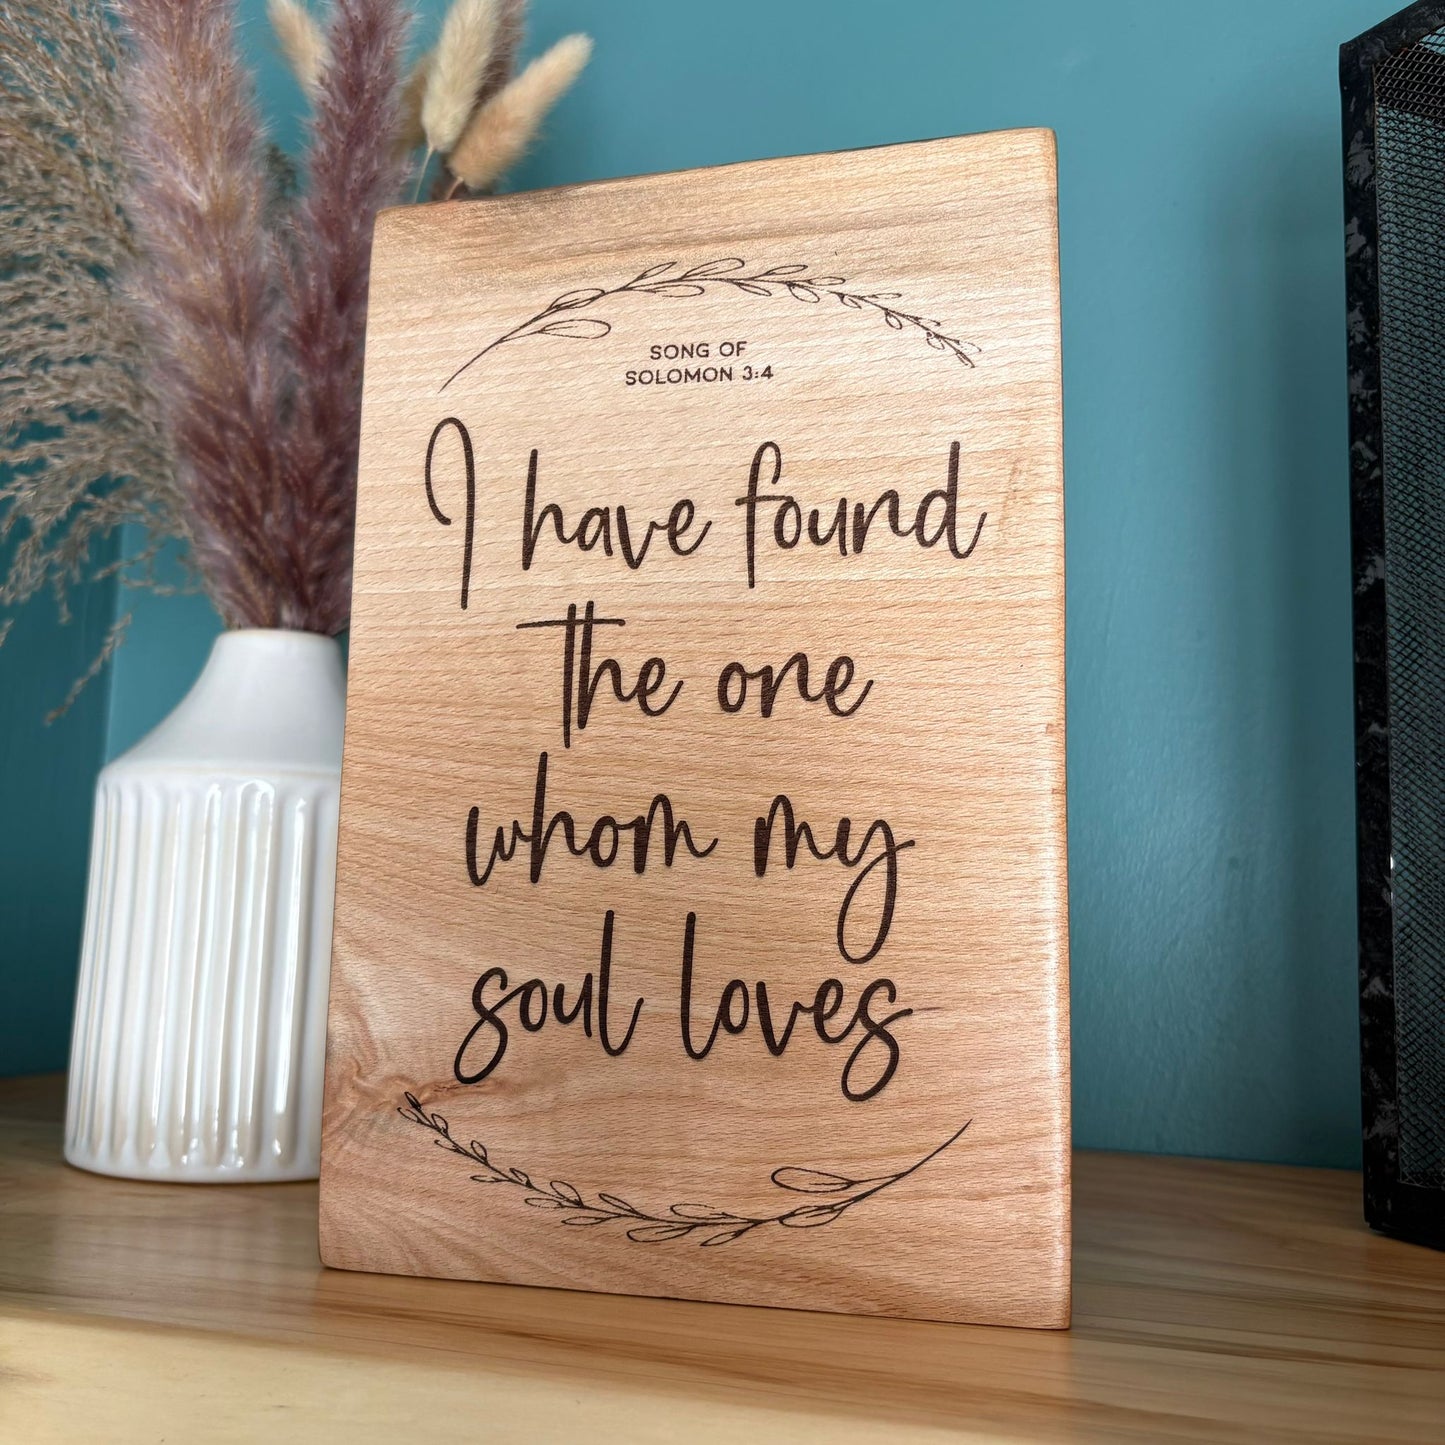 SONG OF
SOLOMON 3:4
I have found
the one
whom my
soul loves